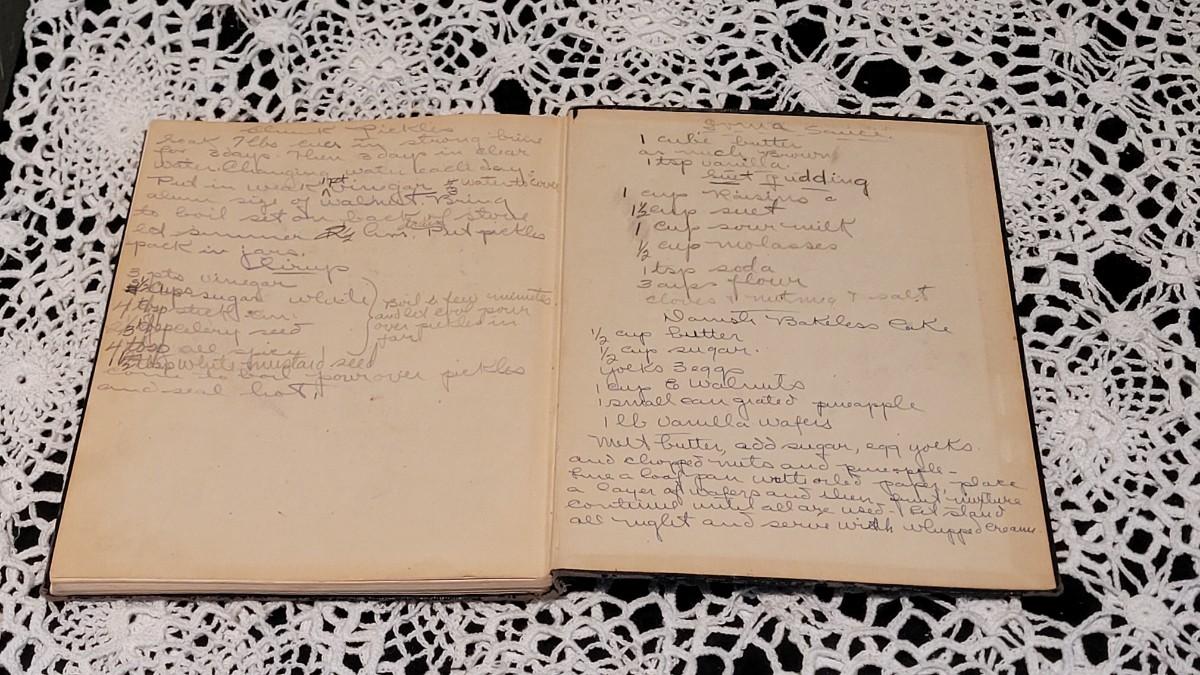 Chunk Pickles
7 lbs cukes in strong brine
for 3 days. Then 3 days in clear
water. Changing water each day.
Put in weak vinegar & water to cover
alum size of walnut. Bring
to boil set on back of stove
simmer 2½ hrs. Put pickles
pack in jars.
Sirup
3 pts vinegar
cups sugar white
4 tbsp stick cin.
celery seed
4 tbsp all spice
boil a few minutes
and let cool pour
over pickles in
jars
tbsp white mustard seed
to boil pour over pickles
and seal hot.
Sauce
1 cube butter
as much brown
1 tsp vanilla
Suet Pudding
1 cup Raisins
1½ cup suet
1 cup sour milk
½ cup molasses
1 tsp soda
3 cups flour
cloves + nutmeg + salt
Danish Bakeless Cake
½ cup butter
½ cup sugar.
yolks 3 eggs
1 cup walnuts
1 small can grated pineapple
1 lb vanilla wafers
Melt butter, add sugar, egg yolks
and chopped nuts and pineapple -
line a loaf pan with oiled paper - place
a layer of wafers and then fruit mixture
continue until all are used. Let stand
all night and serve with whipped cream.